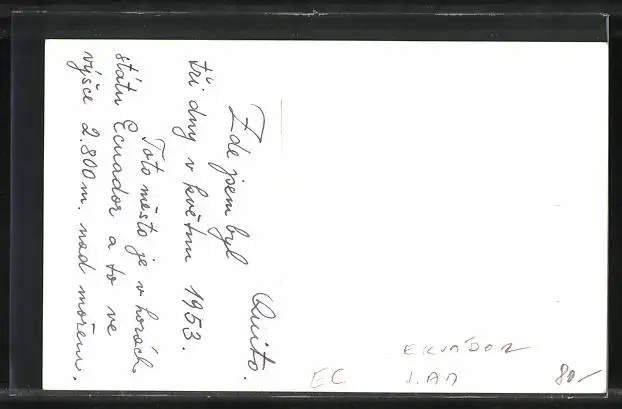 Quito.
Zde jsem byl
tři dny v květnu 1953.
Toto město je v horách
státu Ecuador a to ve
výšce 2.800 m. nad mořem.
EKVÁDOR
EC J.AM
80,-